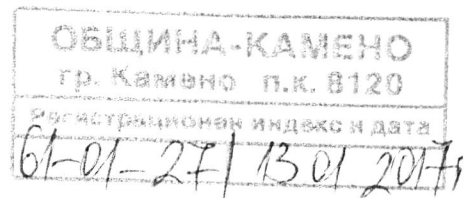 ОБЩИНА-КАМЕНО
гр. Камено п.к. 8120
Регистрационен индекс и дата
61-01-27/ 13 01 2017г